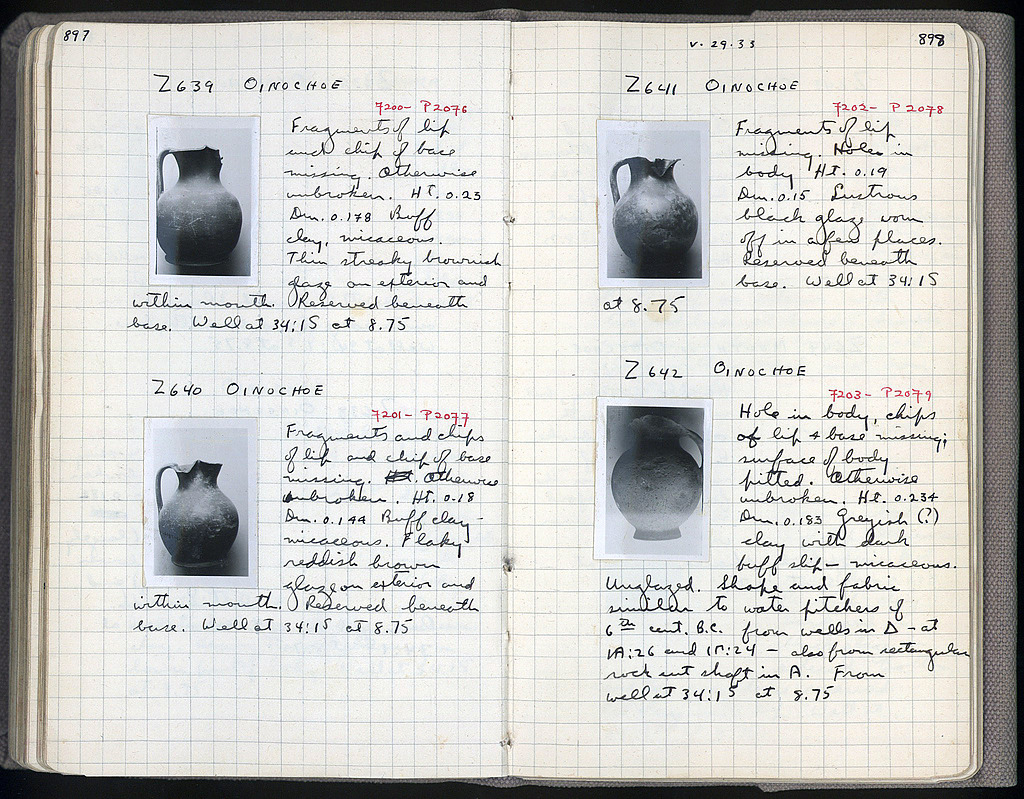 897
Z639 OINOCHOE
7200- P2076
Fragments of lip
and chip of base
missing. Otherwise
unbroken. Ht. 0.23
Dm. 0.178 Buff
clay, micaceous.
Thin streaky brownish
glaze on exterior and
within mouth. Reserved beneath
base. Well at 34:15 at 8.75
Z640 OINOCHOE
7201- P2077
Fragments and chips
of lip and chip of base
missing. Otherwise
unbroken. Ht. 0.18
Dm. 0.144 Buff clay-
micaceous. Flaky
reddish brown
glaze on exterior and
within mouth. Reserved beneath
base. Well at 34:15 at 8.75
V. 29. 33
898
Z641 OINOCHOE
7202- P2078
Fragments of lip
missing. Holes in
body Ht. 0.19
Dm. 0.15 Lustrous
black glaze worn
off in a few places.
Reserved beneath
base. Well at 34:15
at 8.75
Z642 OINOCHOE
7203- P2079
Hole in body, chips
of lip & base missing;
surface of body
pitted. Otherwise
unbroken. Ht. 0.234
Dm. 0.183 Greyish (?)
clay with dark
buff slip - micaceous.
Unglazed. Shape and fabric
similar to water pitchers of
6th cent. B.C. from wells in Δ - at
and - also from rectangular
rock cut shaft in A. From
well at 34:15 at 8.75